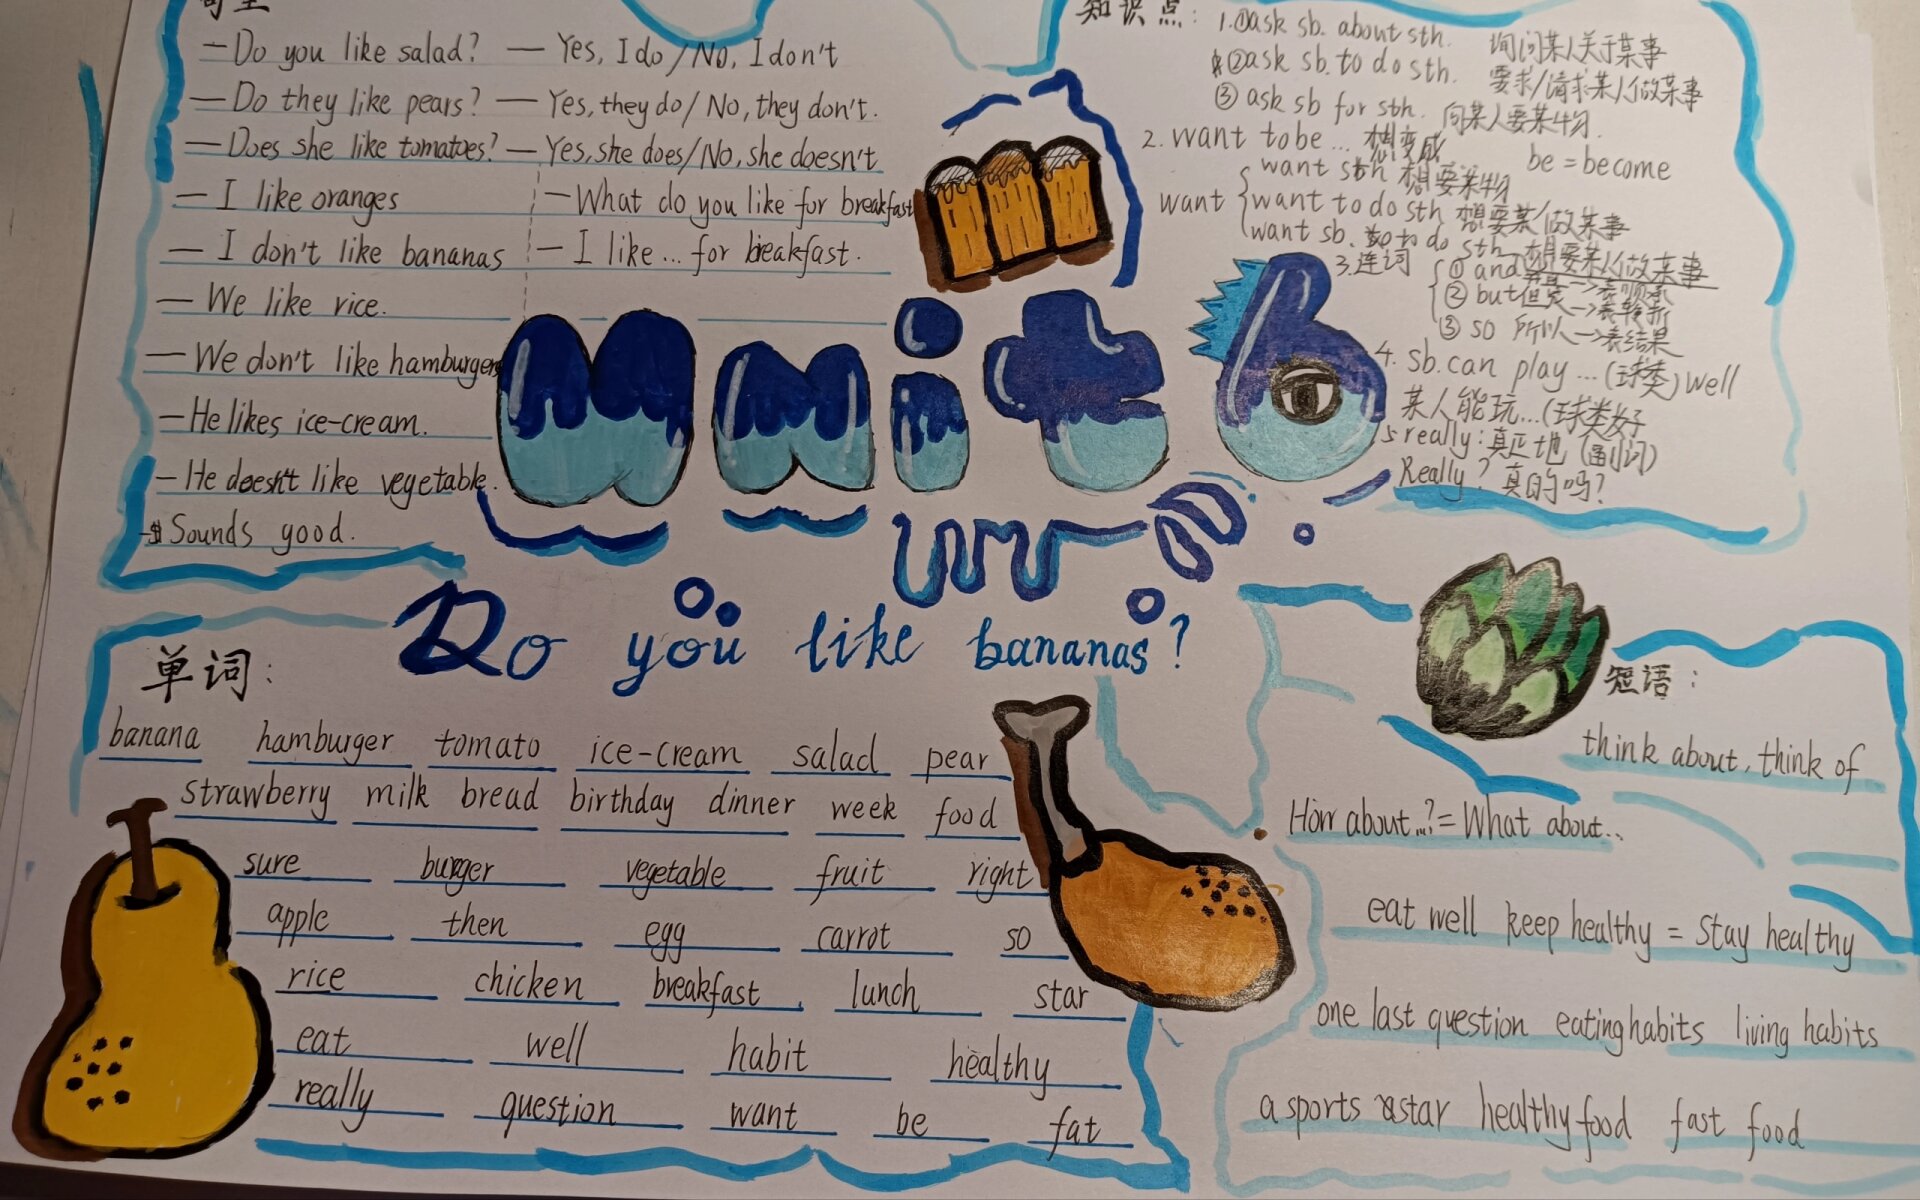 句型
—Do you like salad? — Yes, I do / No, I don't
—Do they like pears? — Yes, they do / No, they don't.
—Does she like tomatoes? — Yes, she does / No, she doesn't
— I like oranges
—What do you like for breakfast
— I don't like bananas
— I like... for breakfast.
— We like rice.
—We don't like hamburgers
—He likes ice-cream.
—He doesn't like vegetable.
Sounds good.
知识点:
1.①ask sb. about sth. 询问某人关于某事
②ask sb. to do sth. 要求/请求某人做某事
③ ask sb for sth. 向某人要某物.
2. want to be ... 想变成 be = become
want sth 想要某物
want want to do sth 想要某人做某事
want sb. to do sth 想要某人做某事
3.连词 ① and
② but但是→表转折
③ so 所以→表结果
4. sb. can play ... (球类) well
某人能玩...(球类好
5 really: 真正地 (副词)
Really? 真的吗?
Unit 6
Do you like bananas?
单词:
banana hamburger tomato ice-cream salad pear
strawberry milk bread birthday dinner week food
sure burger vegetable fruit right
apple then egg carrot so
rice chicken breakfast lunch star
eat well habit healthy
really question want be fat
短语:
think about, think of
How about...? = What about...
eat well keep healthy = stay healthy
one last question eating habits living habits
a sports star healthy food fast food